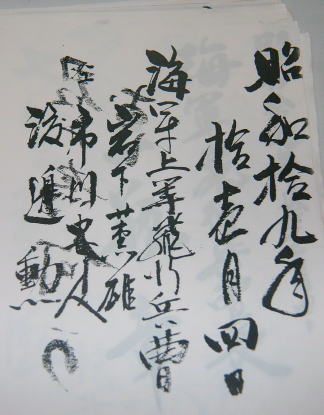 昭和拾九年
拾壱月四日
海軍上等飛行兵曹
岩下
市川
渡邉勲